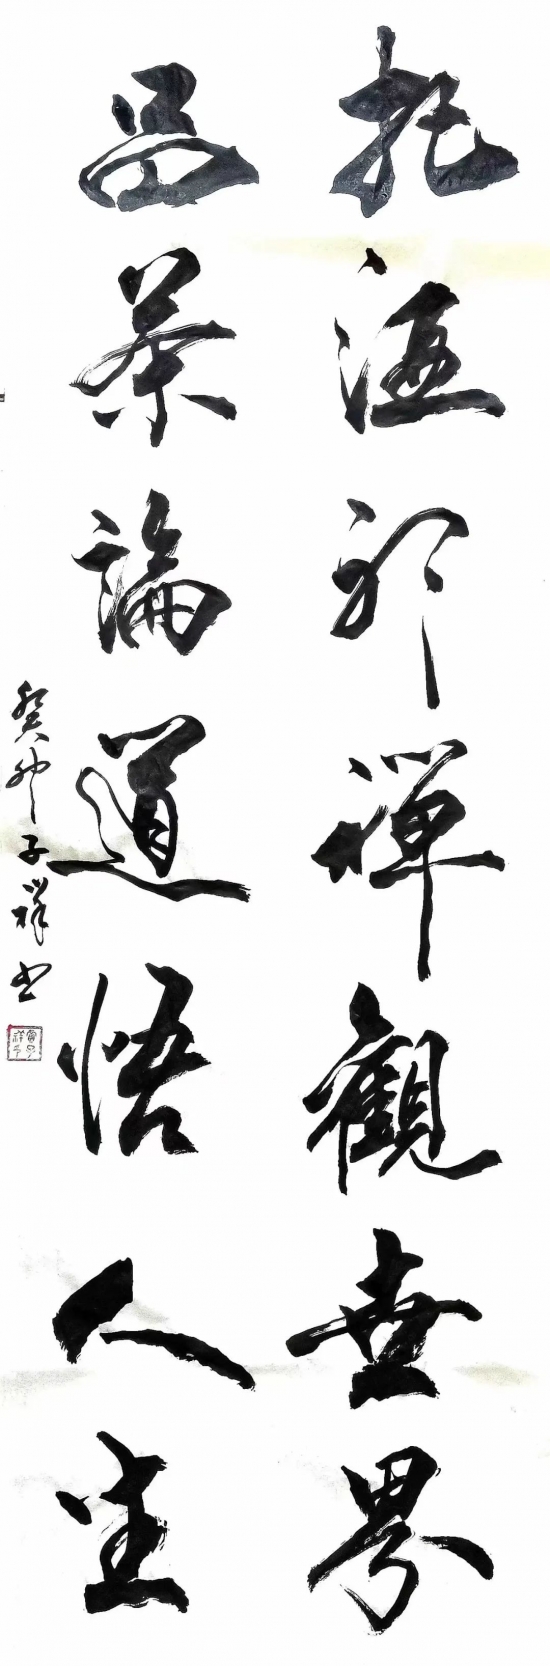 把酒聊禪觀世界
品茶論道悟人生
癸卯子祥书